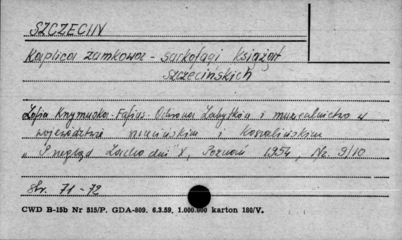 SZCZECIN
Kaplica zamkowa - sarkofagi książąt
szczecińskich
Zofia Krzymuska-Fafius. Ochrona Zabytków i muzealnictwo w
województwie i Koszalińskim
"Przegląd Zachodni" X, Poznań 1954, No. 9/10
Str. 71-72
CWD B-15b Nr 515/P. GDA-809. 6.3.59. 1.000.000 karton 180/V.